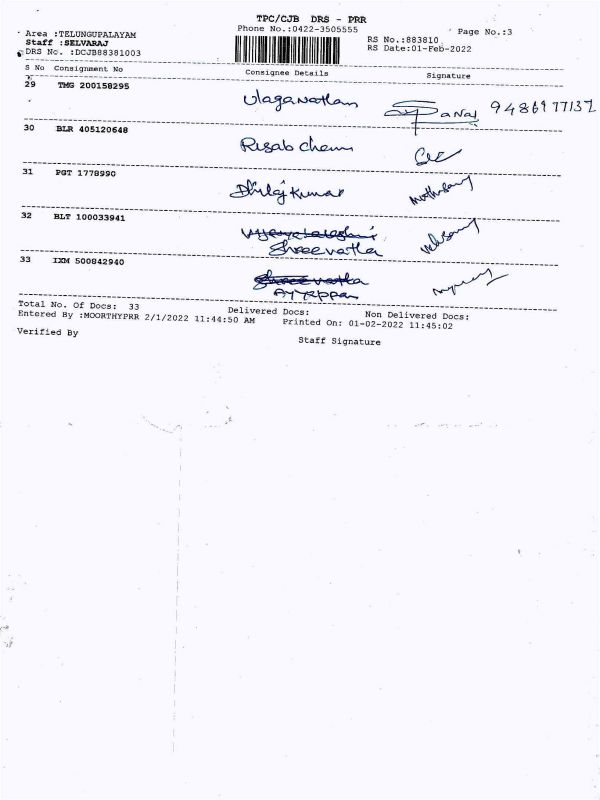 TPC/CJB DRS - PRR
Area :TELUNGUPALAYAM Phone No.:0422-3505555 Page No.:3
Staff :SELVARAJ RS No.:883810
DRS No. :DCJB88381003 RS Date:01-Feb-2022
S No Consignment No Consignee Details Signature
29 TMG 200158295 Ulaganathan 9486977137
30 BLR 405120648 Risab Chem
31 PGT 1778990 Dhilaj Kumar
32 BLT 100033941
Shreevatha
33 IXM 500842940 Shreevatha
Ayyappan
Total No. Of Docs: 33 Delivered Docs: Non Delivered Docs:
Entered By :MOORTHYPRR 2/1/2022 11:44:50 AM Printed On: 01-02-2022 11:45:02
Verified By Staff Signature